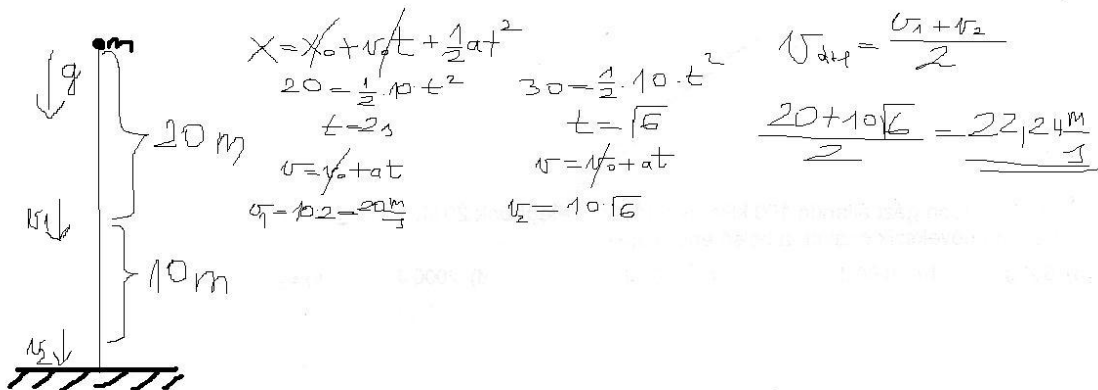 m
g
20 m
v1
10 m
v2
X = X₀ + v₀t + ½at²
20 = ½·10·t²
t = 2s
v = v₀ + at
v₁ = 10·2 = 20 m/s
30 = ½·10·t²
t = √6
v = v₀ + at
v₂ = 10·√6
v = (v₁ + v₂)/2
(20 + 10√6)/2 = 22,24 m/s